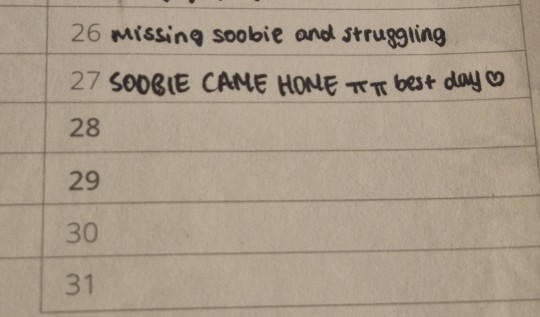 26 missing soobie and struggling
27 SOOBIE CAME HOME ㅠㅠ best day♡
28
29
30
31